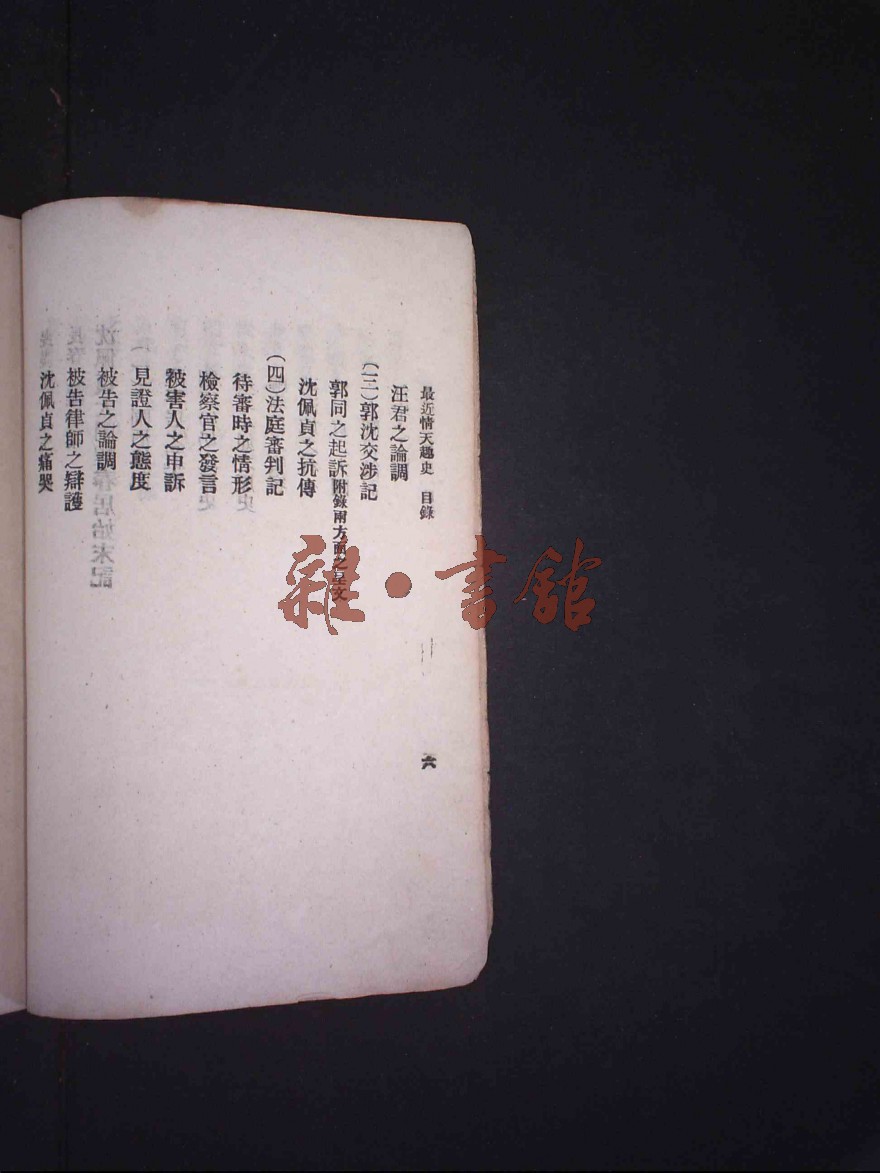 最近情天趣史　目錄
六
汪君之論調
（三）郭沈交涉記
郭同之起訴附錄兩方面之呈文
沈佩貞之抗傳
（四）法庭審判記
待審時之情形
檢察官之發言
被害人之申訴
見證人之態度
被告之論調
被告律師之辯護
沈佩貞之痛哭
雜·書館